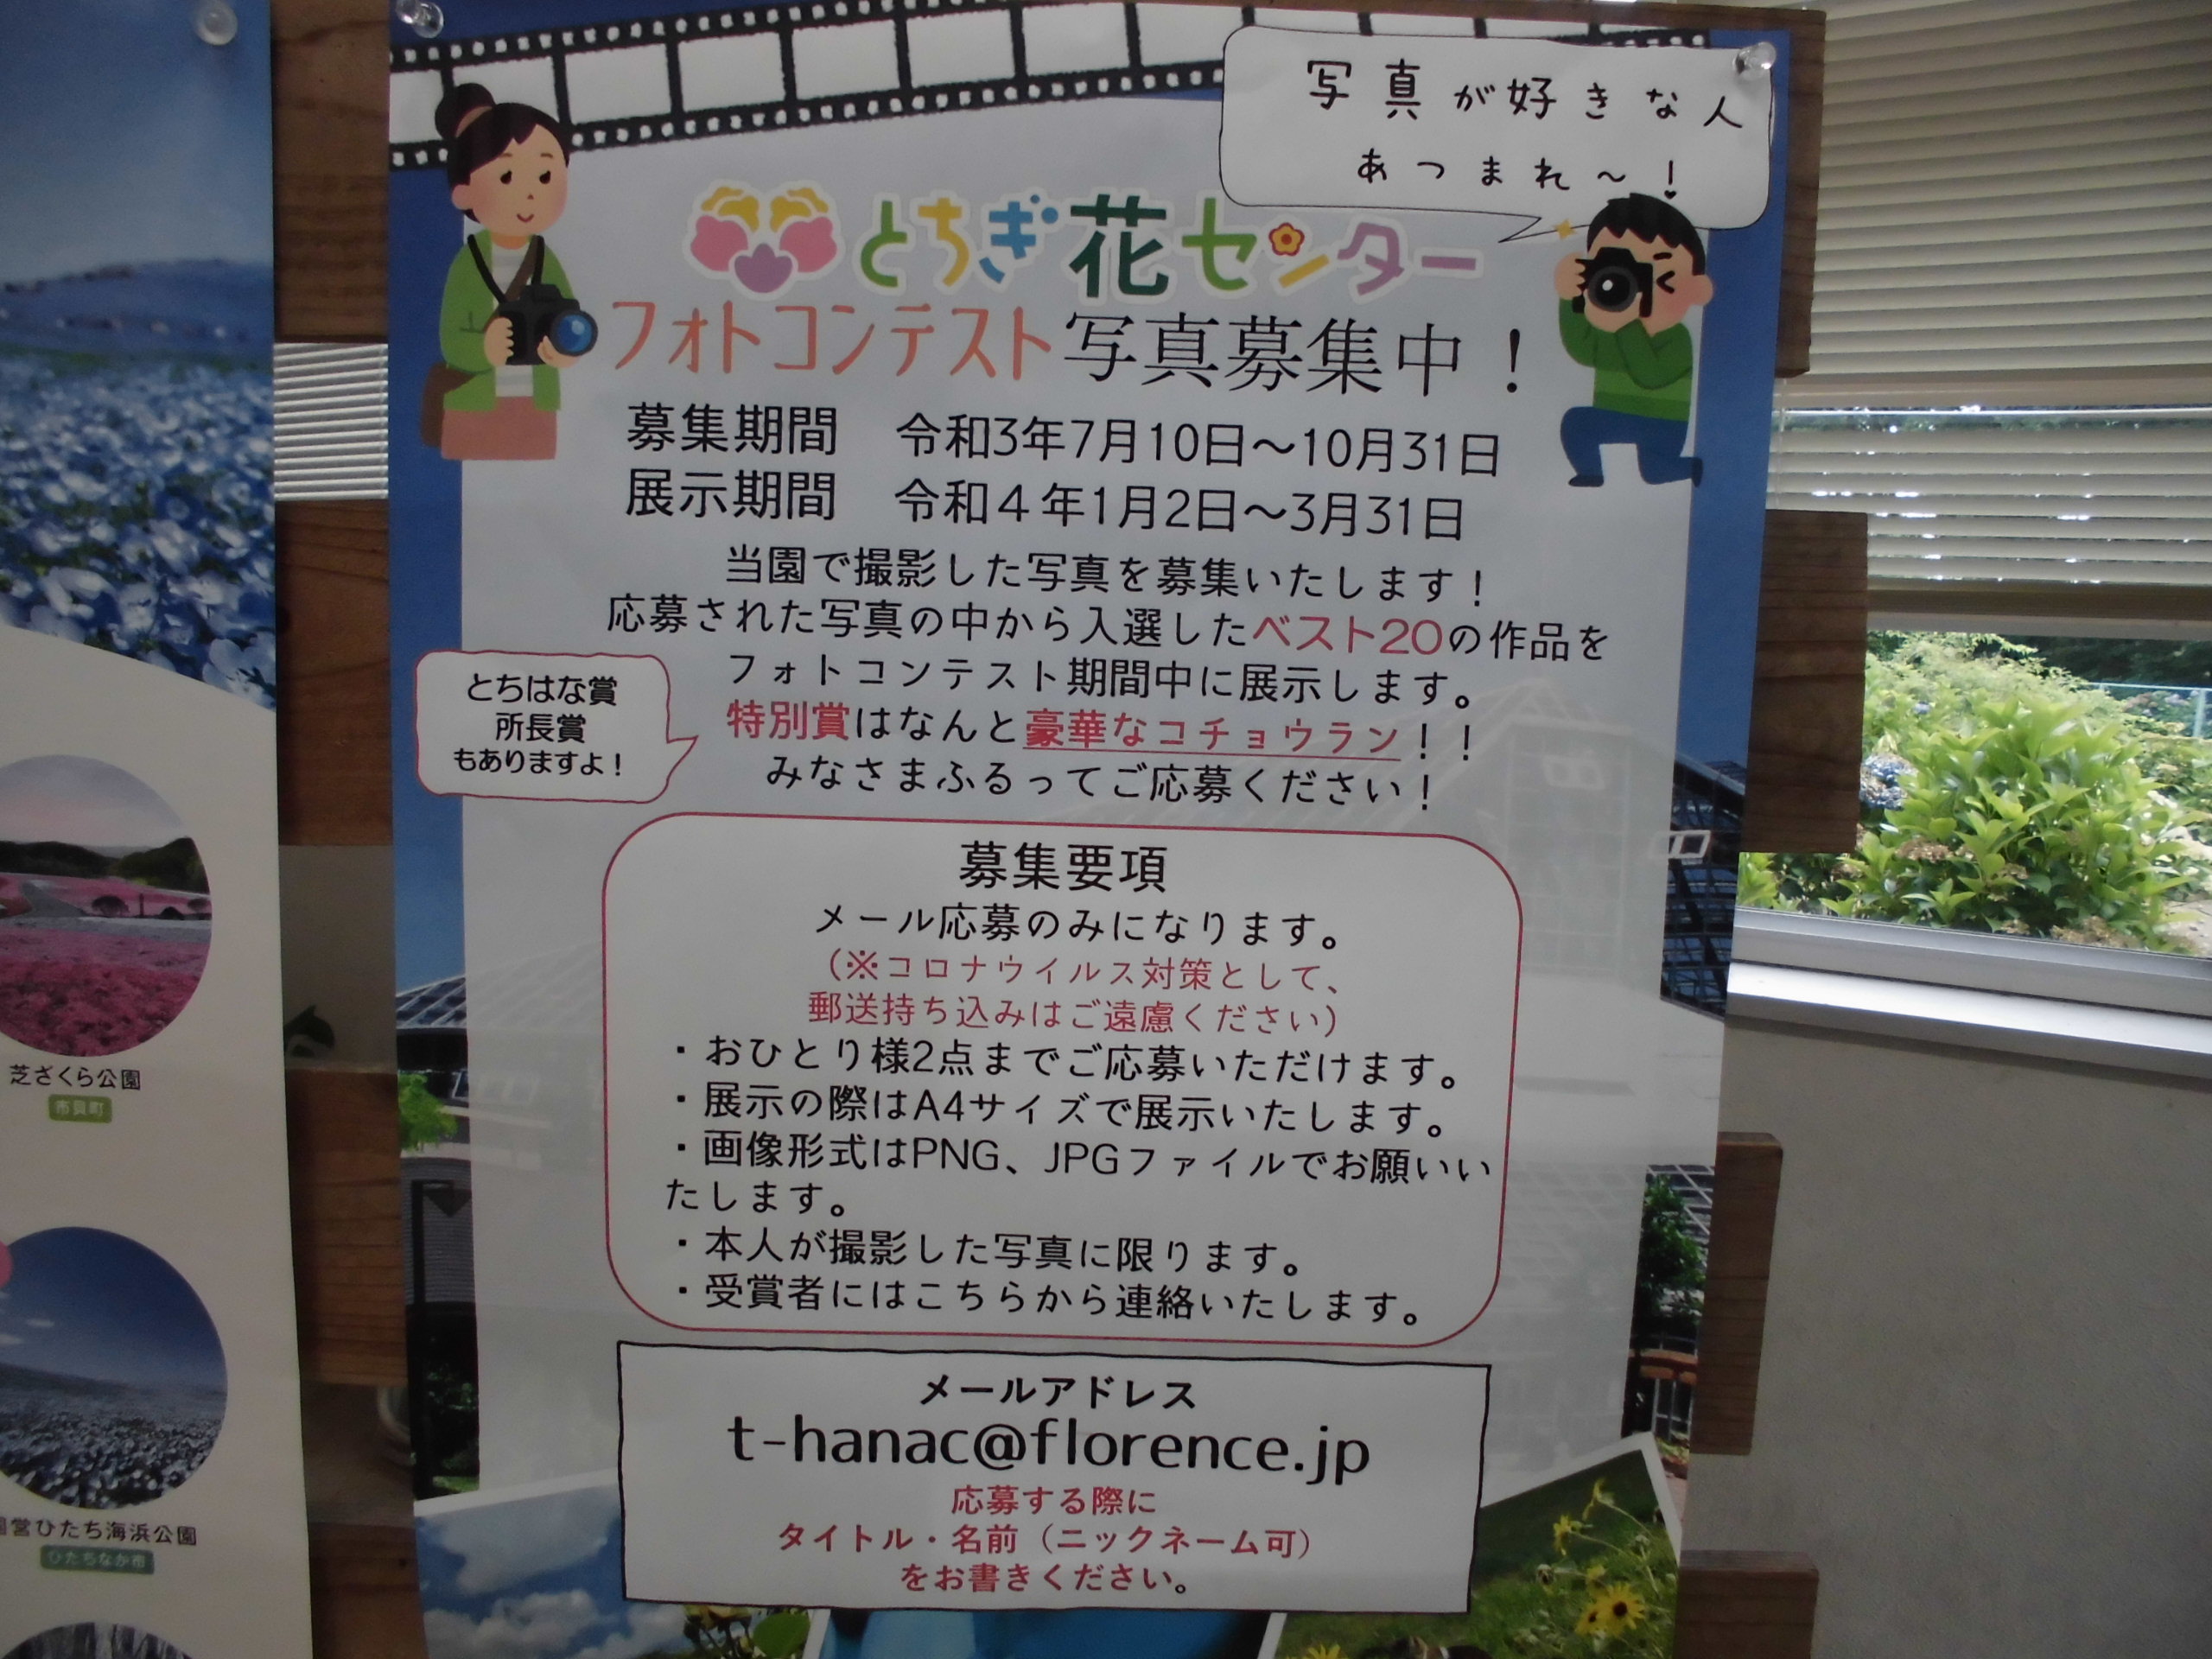 写真が好きな人
あつまれ～！
とちぎ花センター
フォトコンテスト写真募集中！
募集期間　令和3年7月10日～10月31日
展示期間　令和４年1月2日～3月31日
当園で撮影した写真を募集いたします！
応募された写真の中から入選したベスト20の作品を
フォトコンテスト期間中に展示します。
特別賞はなんと豪華なコチョウラン！！
みなさまふるってご応募ください！
とちはな賞
所長賞
もありますよ！
募集要項
メール応募のみになります。
（※コロナウイルス対策として、
郵送持ち込みはご遠慮ください）
・おひとり様2点までご応募いただけます。
・展示の際はA4サイズで展示いたします。
・画像形式はPNG、JPGファイルでお願いい
たします。
・本人が撮影した写真に限ります。
・受賞者にはこちらから連絡いたします。
メールアドレス
t-hanac@florence.jp
応募する際に
タイトル・名前（ニックネーム可）
をお書きください。
芝ざくら公園
市貝町
営ひたち海浜公園
ひたちなか市